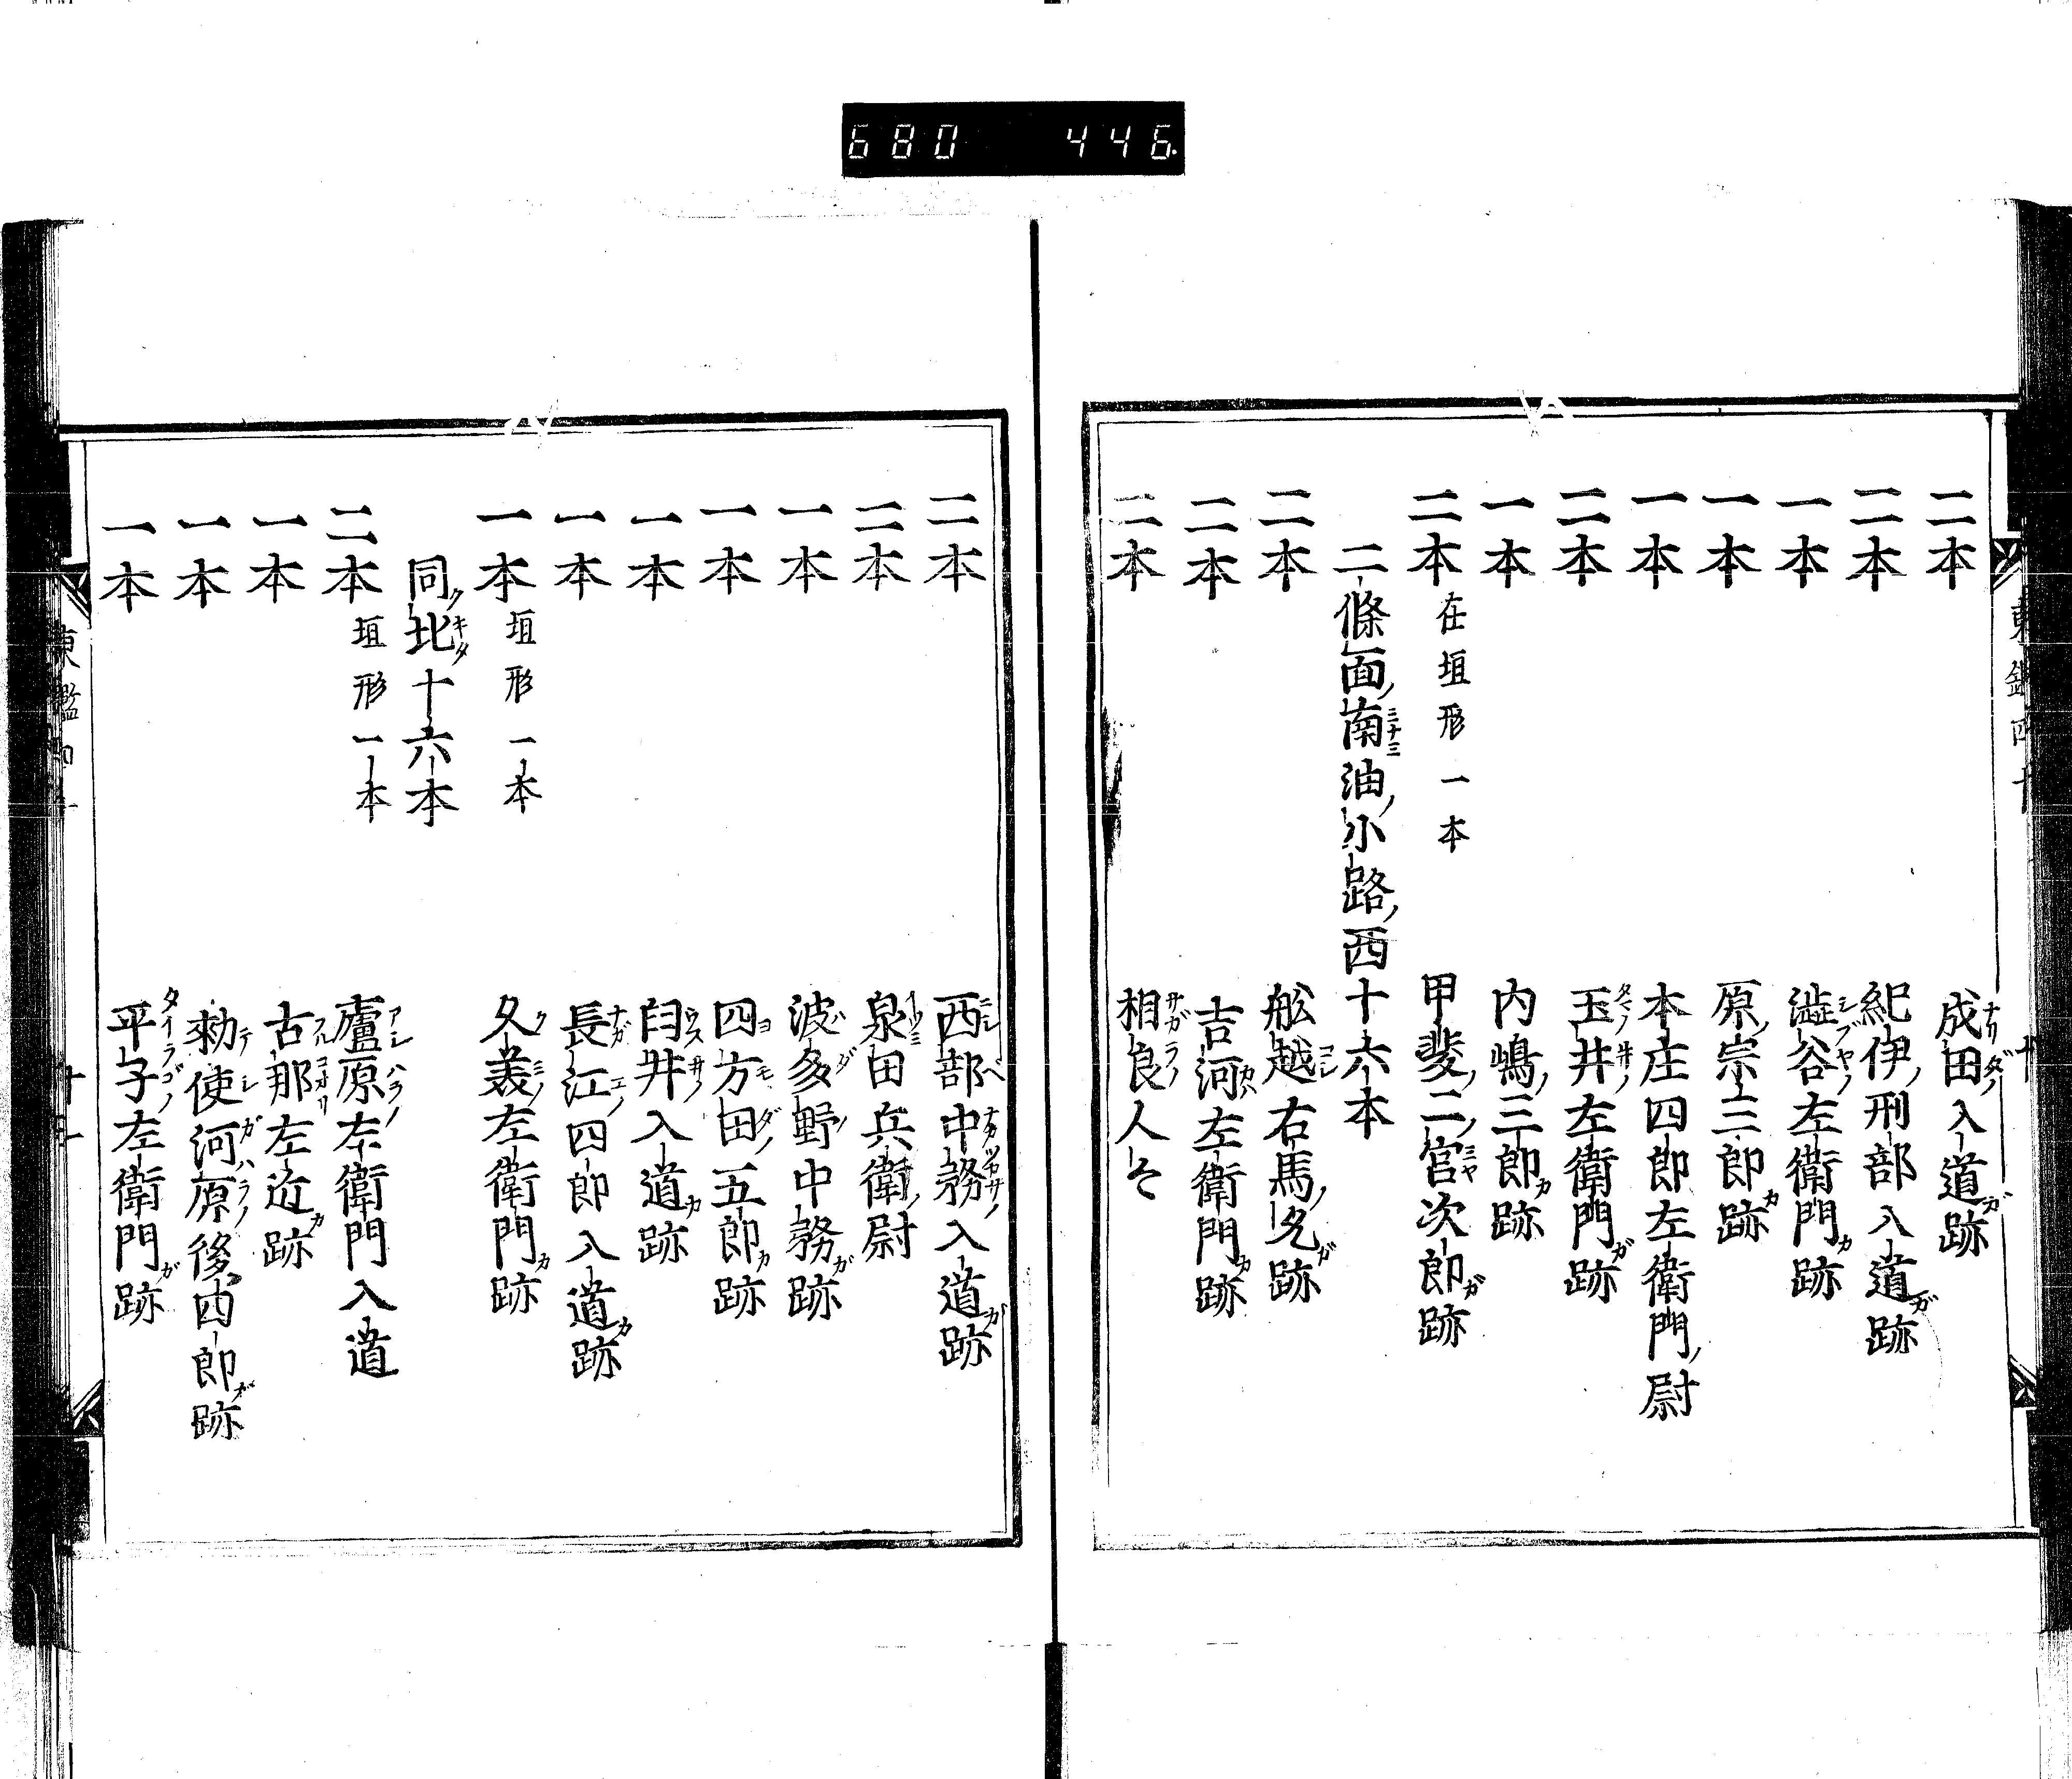 680 446
二本 成田入道跡
二本 紀伊刑部入道跡
一本 澁谷左衛門跡
一本 原宗三郎跡
一本 本庄四郎左衛門尉
二本 玉井左衛門跡
一本 内嶋三郎跡
二本 在垣形一本 甲斐二宮次郎跡
二條面南油小路西十六本
二本 舩越右馬允跡
二本 吉河左衛門跡
二本 相良人々
二本 西部中務入道跡
二本 泉田兵衛尉
一本 波多野中務跡
一本 四方田五郎跡
一本 臼井入道跡
一本 長江四郎入道跡
一本 垣形一本 久義左衛門跡
同北十六本
二本 垣形一本 廬原左衛門入道
一本 古那左近跡
一本 勅使河原後四郎跡
一本 平子左衛門跡